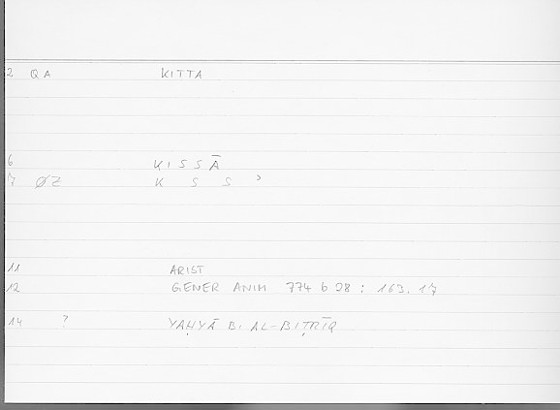 2 QA KITTA
6 ḲISSĀ
7 ØZ K S S ʾ
11 ARIST
12 GENER ANIM 774 b 28 : 163.17
14 ? YAḤYĀ B. AL-BIṬRĪQ